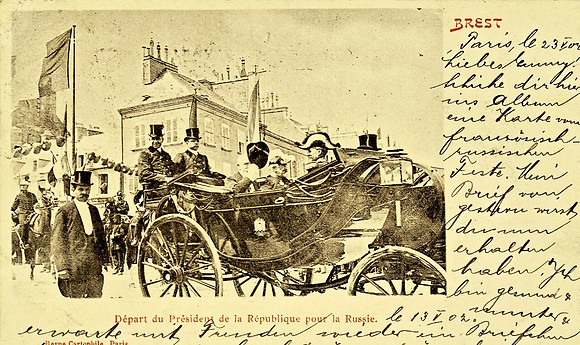 BREST
Paris, le 23 V 02
Liebes
schicke dir hier
ins Album
eine Karte vom
französisch-
russischen
Feste. Mein
Brief von
gestern wirst
du nun
erhalten
haben. Ich
bin gesund &
munter &
Départ du Président de la République pour la Russie.
le 13 V 02.
erwarte mit Freuden wieder ein Briefchen
Revue Cartophile, Paris